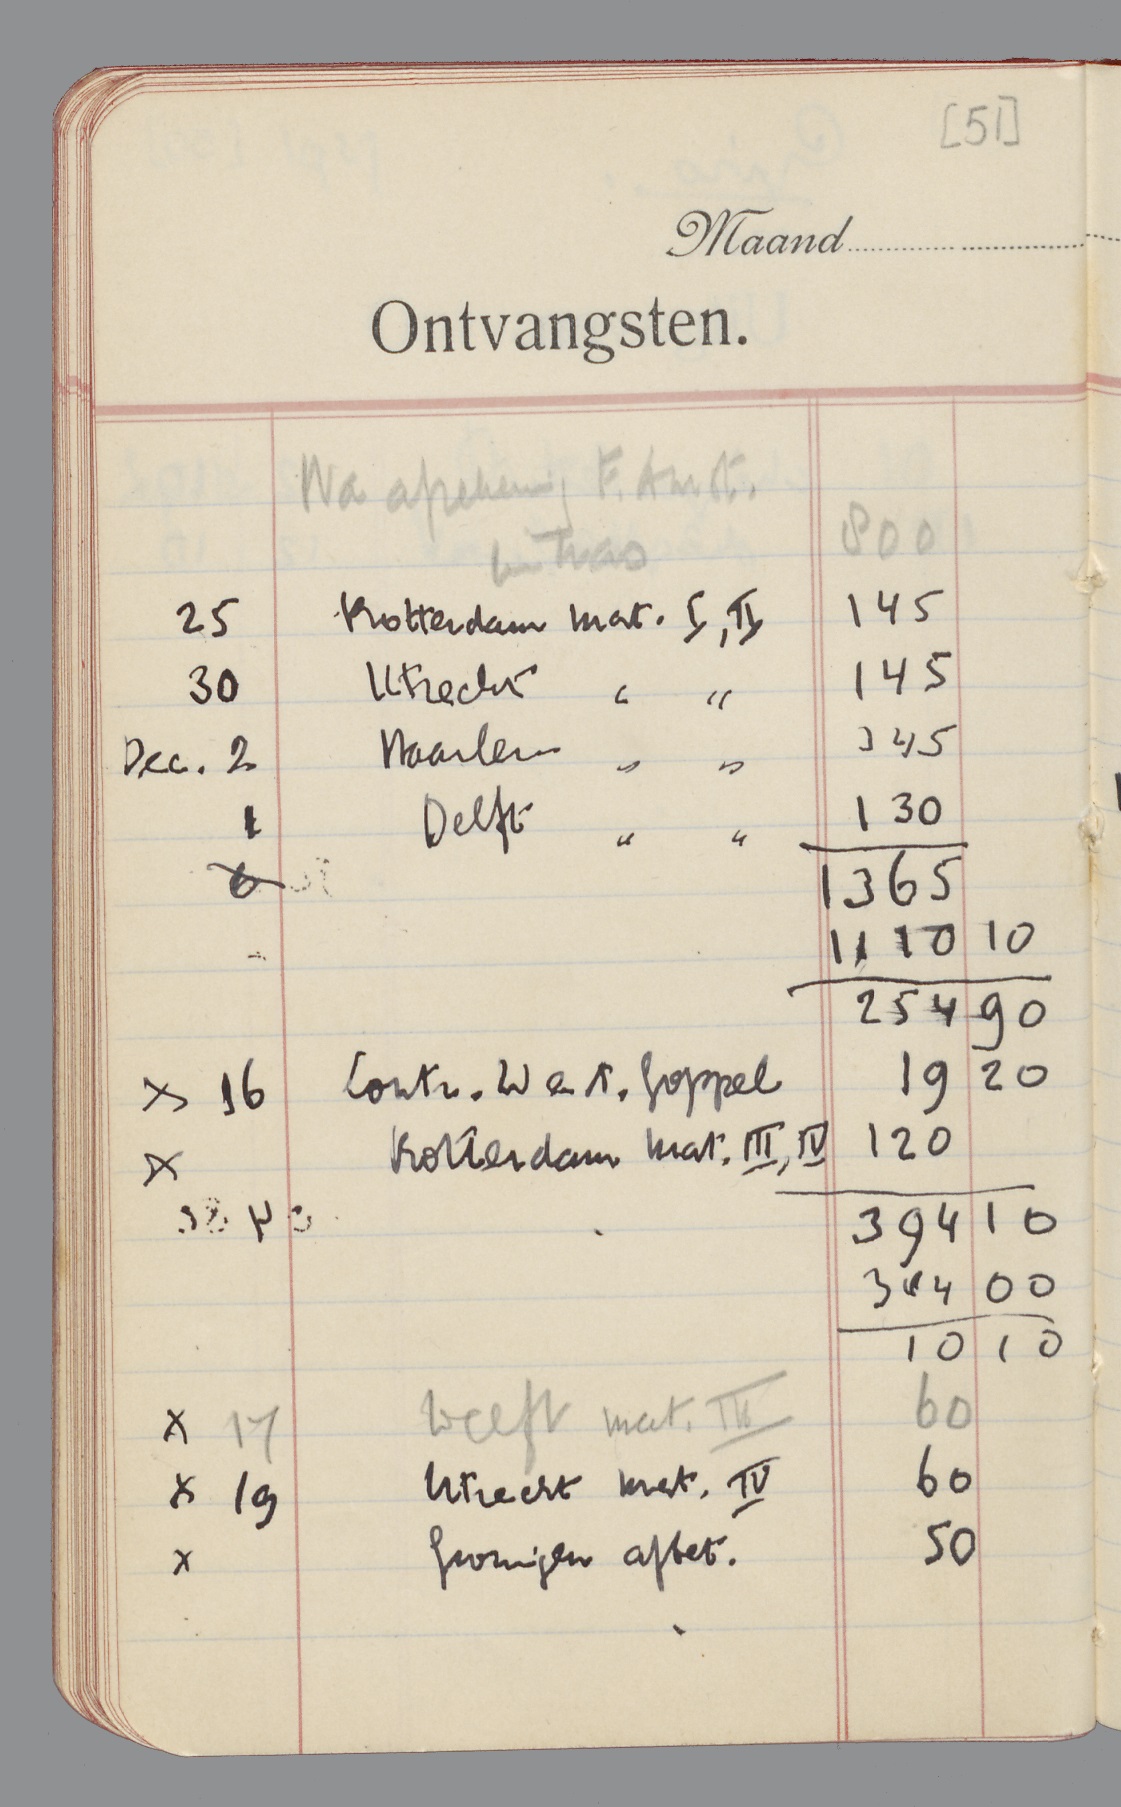 [51]
Maand
Ontvangsten.
Na afrekening F. Amst.
800
25 Rotterdam mat. I, II 145
30 Utrecht " " 145
Dec. 2 Haarlem " " 145
1 Delft " " 130
6 1365
1110 10
254 90
x 16 Contr. W e. t. Goppel 19 20
x Rotterdam mat. III, IV 120
394 10
384 00
10 10
x 17 Delft mat. III 60
x 19 Utrecht mat. IV 60
x Groningen afbet. 50